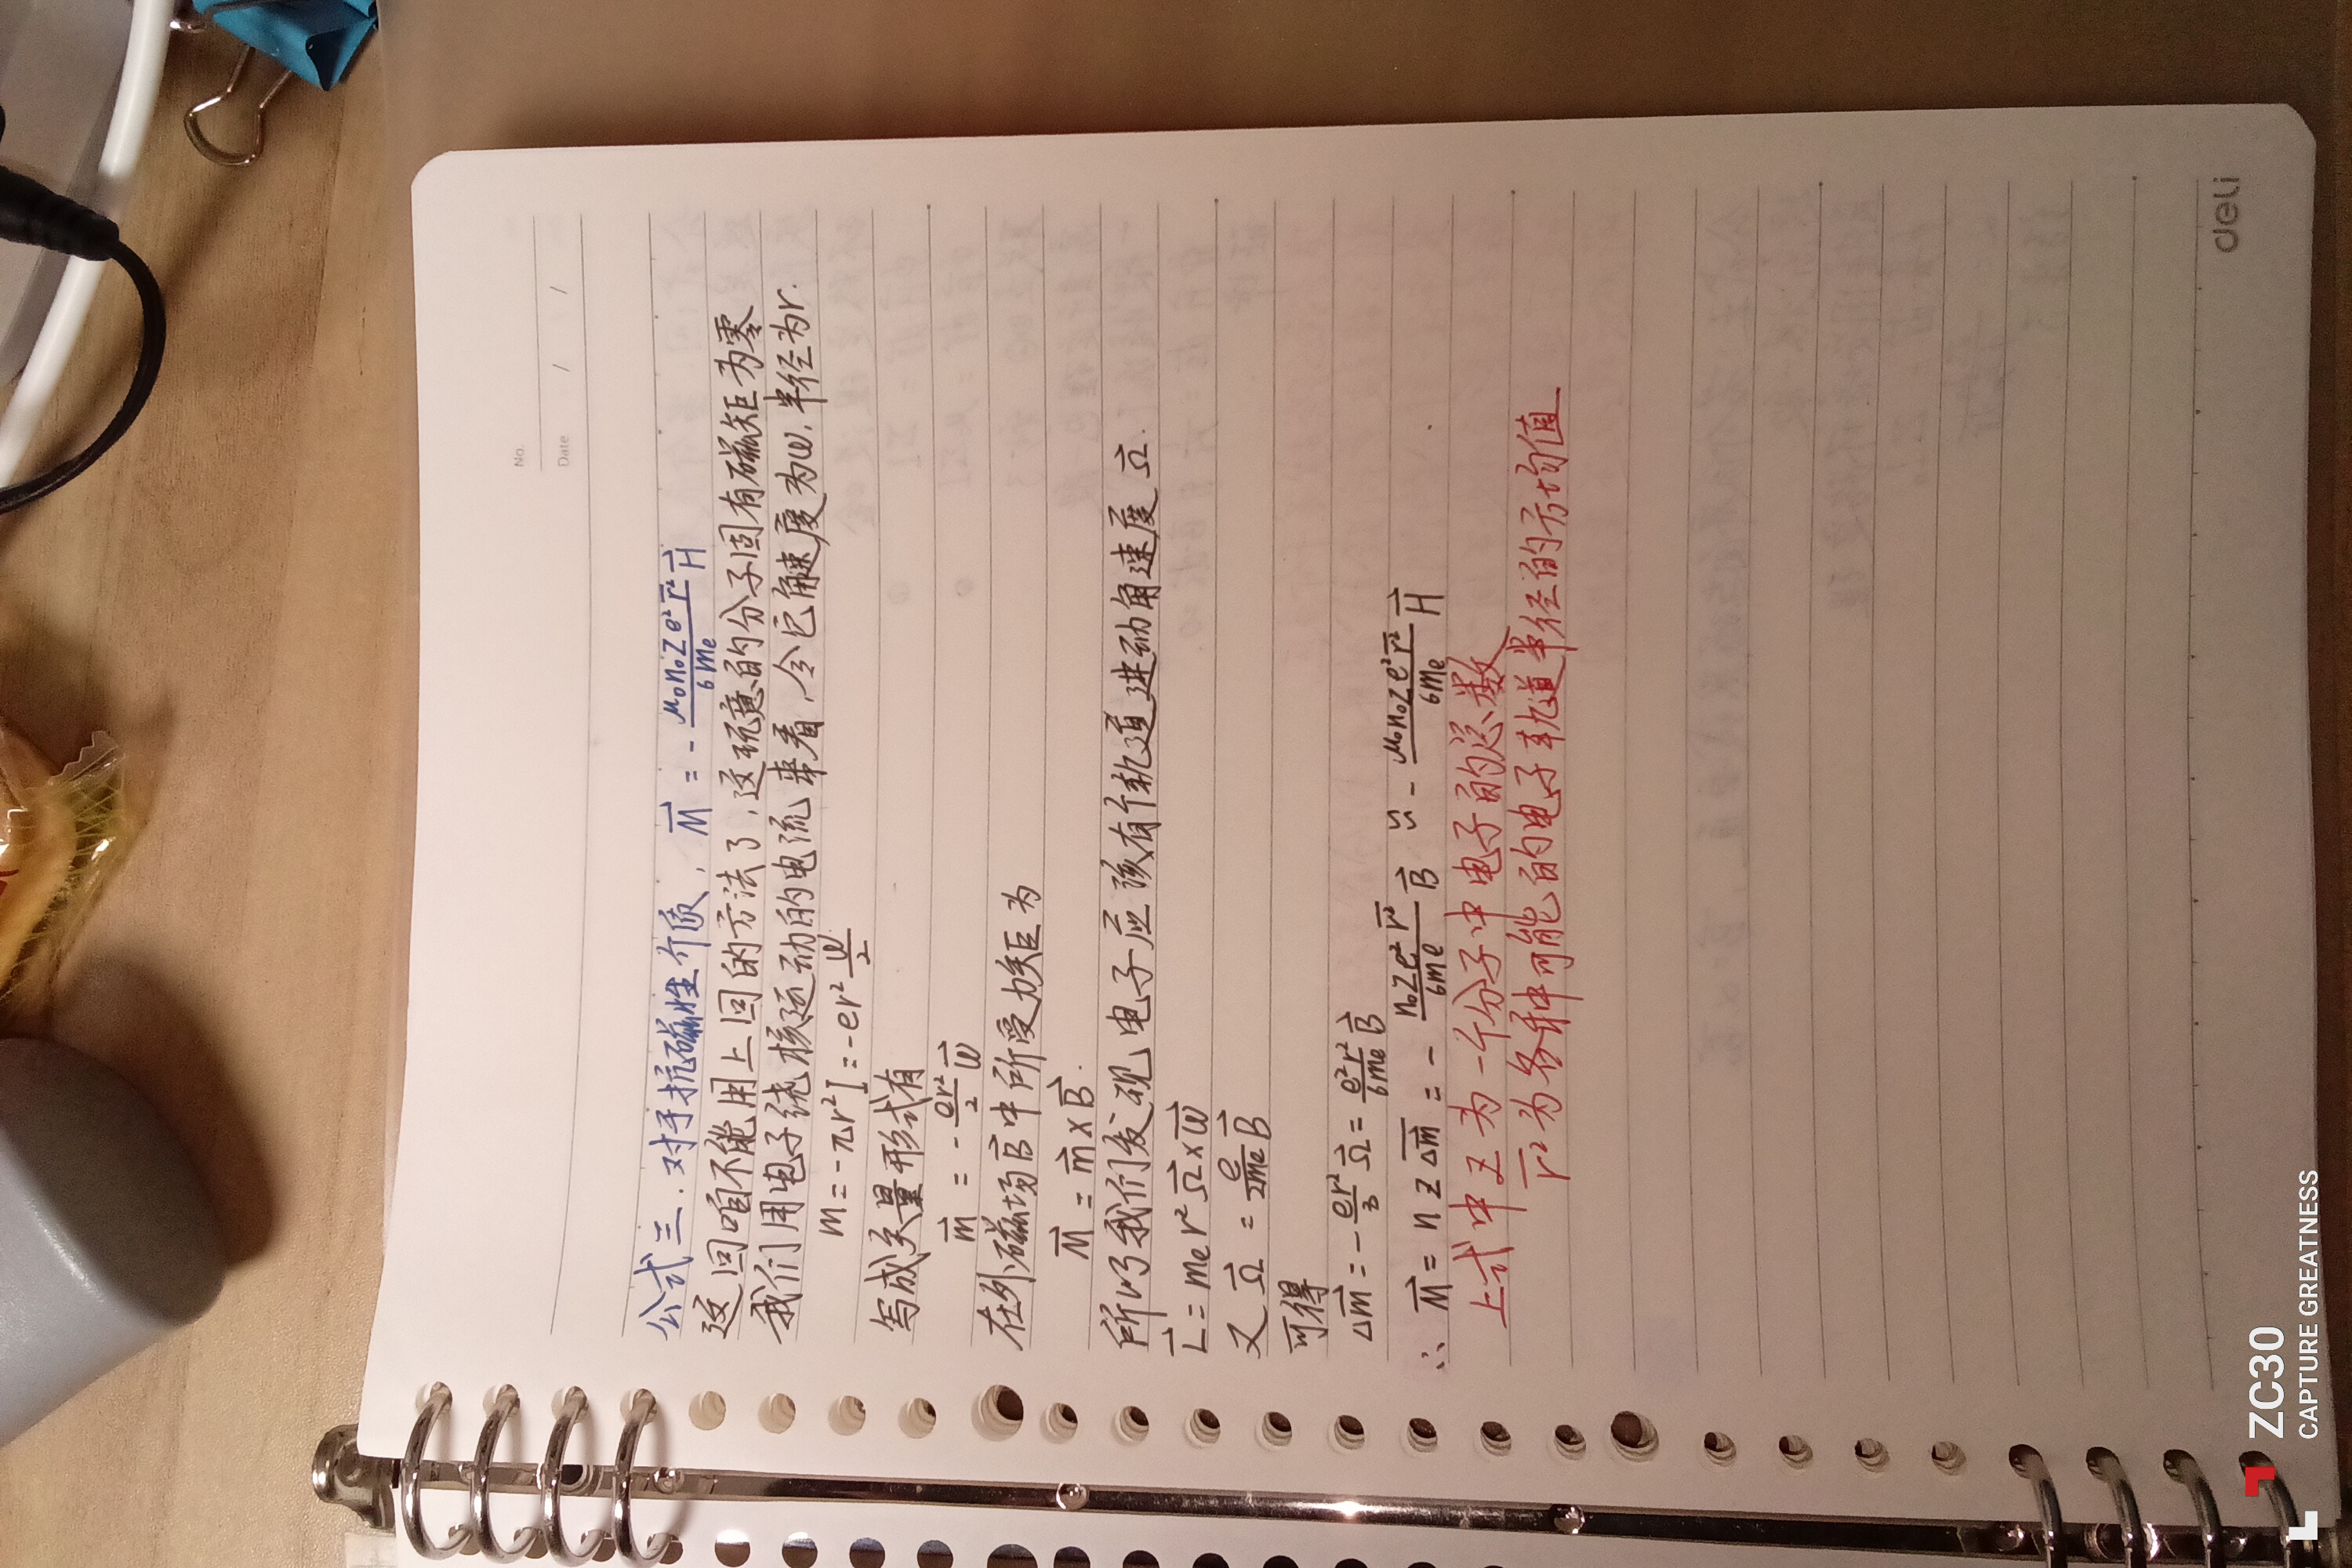 No.
Date / /
公式三.对于抗磁性介质, M⃗ = - μ₀n₀Ze²r̅²/6me H⃗
这回咱不能用上回的方法了,这玩意的分子固有磁矩为零
我们用电子绕核运动的电流来看,令它角速度为ω,半径为r.
m = -πr²I = -er² ω/2
写成矢量形式有
m⃗ = - er²/2 ω⃗
在外磁场B⃗中所受力矩为
M⃗ = m⃗ × B⃗.
所以我们发现电子应该有个轨道进动角速度 Ω⃗.
L⃗ = me r² Ω⃗ × ω⃗
又 Ω⃗ = e/2me B⃗
可得
Δm⃗ = - er²/3 Ω⃗ = e²r²/6me B⃗
∴ M⃗ = n Z Δm⃗ = - n₀Ze²r̅²/6me B⃗ ≈ - μ₀n₀Ze²r̅²/6me H⃗
上式中Z为一个分子中电子的总数
r̅²为各种可能的电子轨道半径的方均值
deli
ZC30
CAPTURE GREATNESS